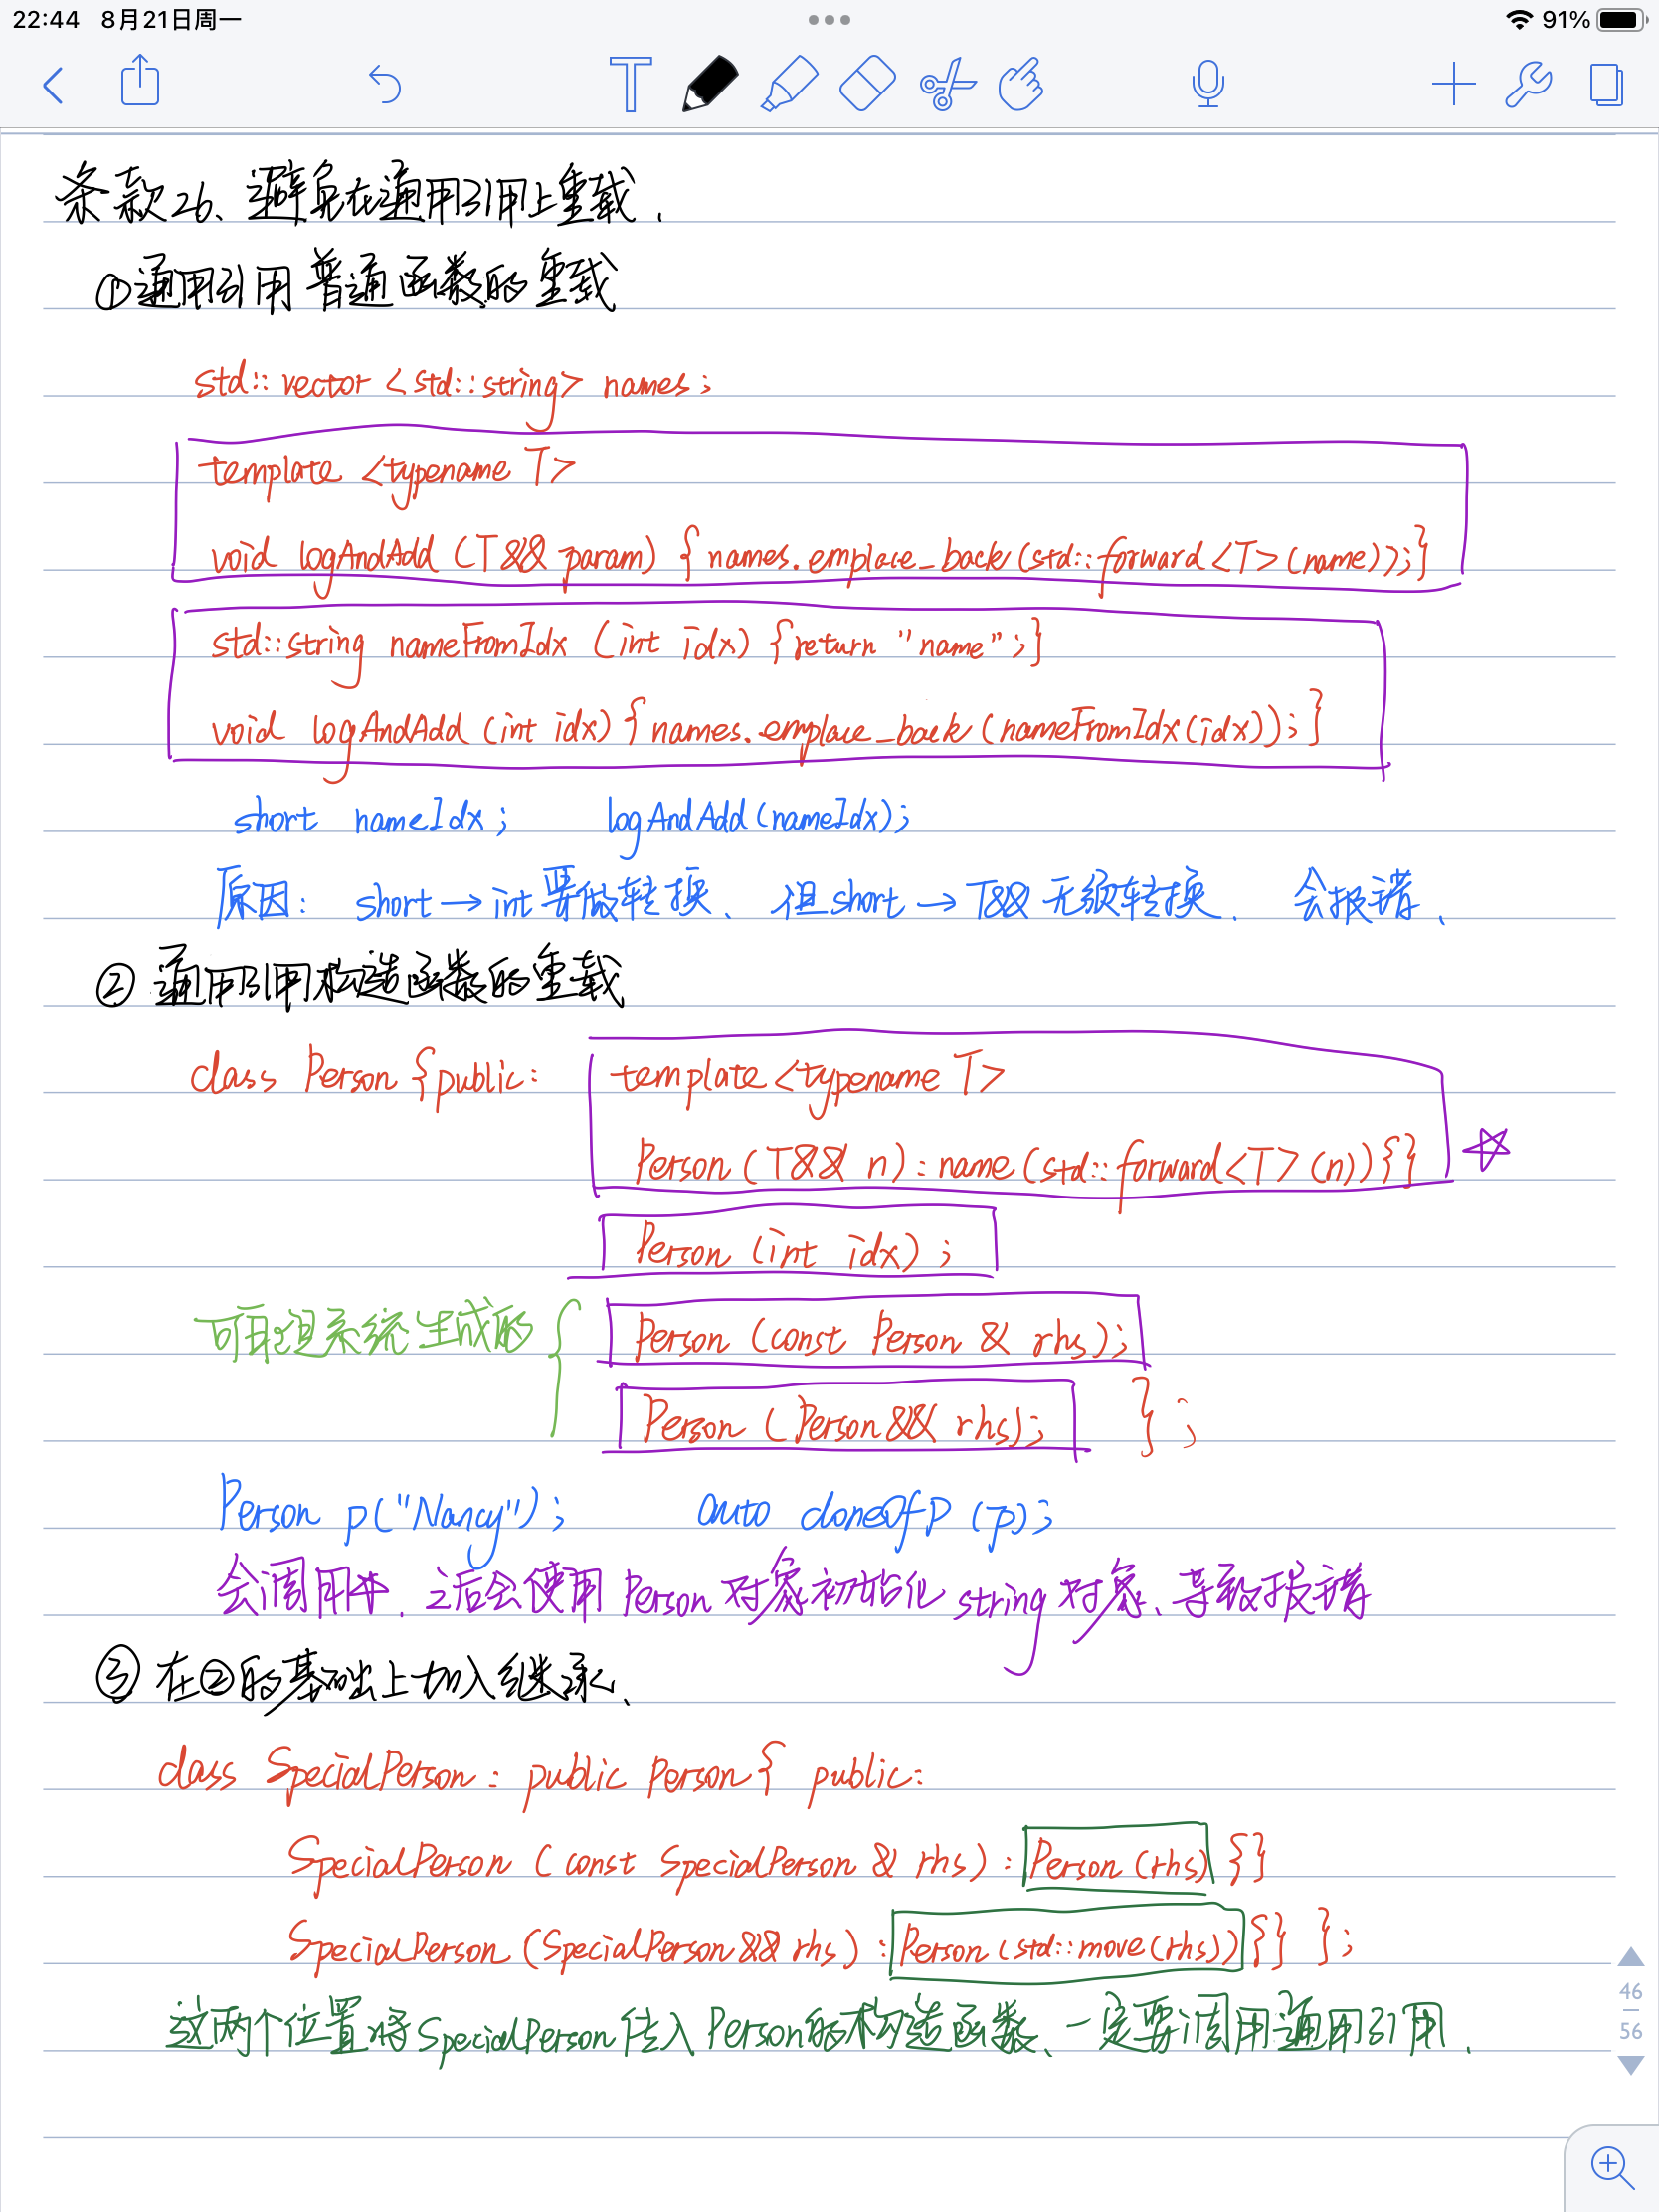 22:44 8月21日周一 91%
条款26、避免在通用引用上重载.
①通用引用普通函数的重载
std::vector <std::string> names;
template <typename T>
void logAndAdd (T&& param) { names.emplace_back(std::forward<T>(name));}
std::string nameFromIdx (int idx) {return "name";}
void logAndAdd (int idx) { names.emplace_back (nameFromIdx(idx));}
short nameIdx; logAndAdd(nameIdx);
原因: short→int要做转换、但short→T&&无须转换. 会报错.
② 通用引用构造函数的重载
class Person {public: template <typename T>
Person (T&& n): name (std::forward<T>(n)){} ☆
Person (int idx);
可能是系统生成的 { Person (const Person & rhs);
Person (Person&& rhs); };
Person p("Nancy"); auto cloneOfP (p);
会调用☆. 之后会使用Person对象初始化string对象、导致报错
③ 在②的基础上加入继承.
class SpecialPerson: public Person{ public:
SpecialPerson (const SpecialPerson & rhs): Person (rhs) {}
SpecialPerson (SpecialPerson && rhs): Person (std::move(rhs)) {} };
这两个位置将SpecialPerson传入Person的构造函数、一定要调用通用引用.
46
56